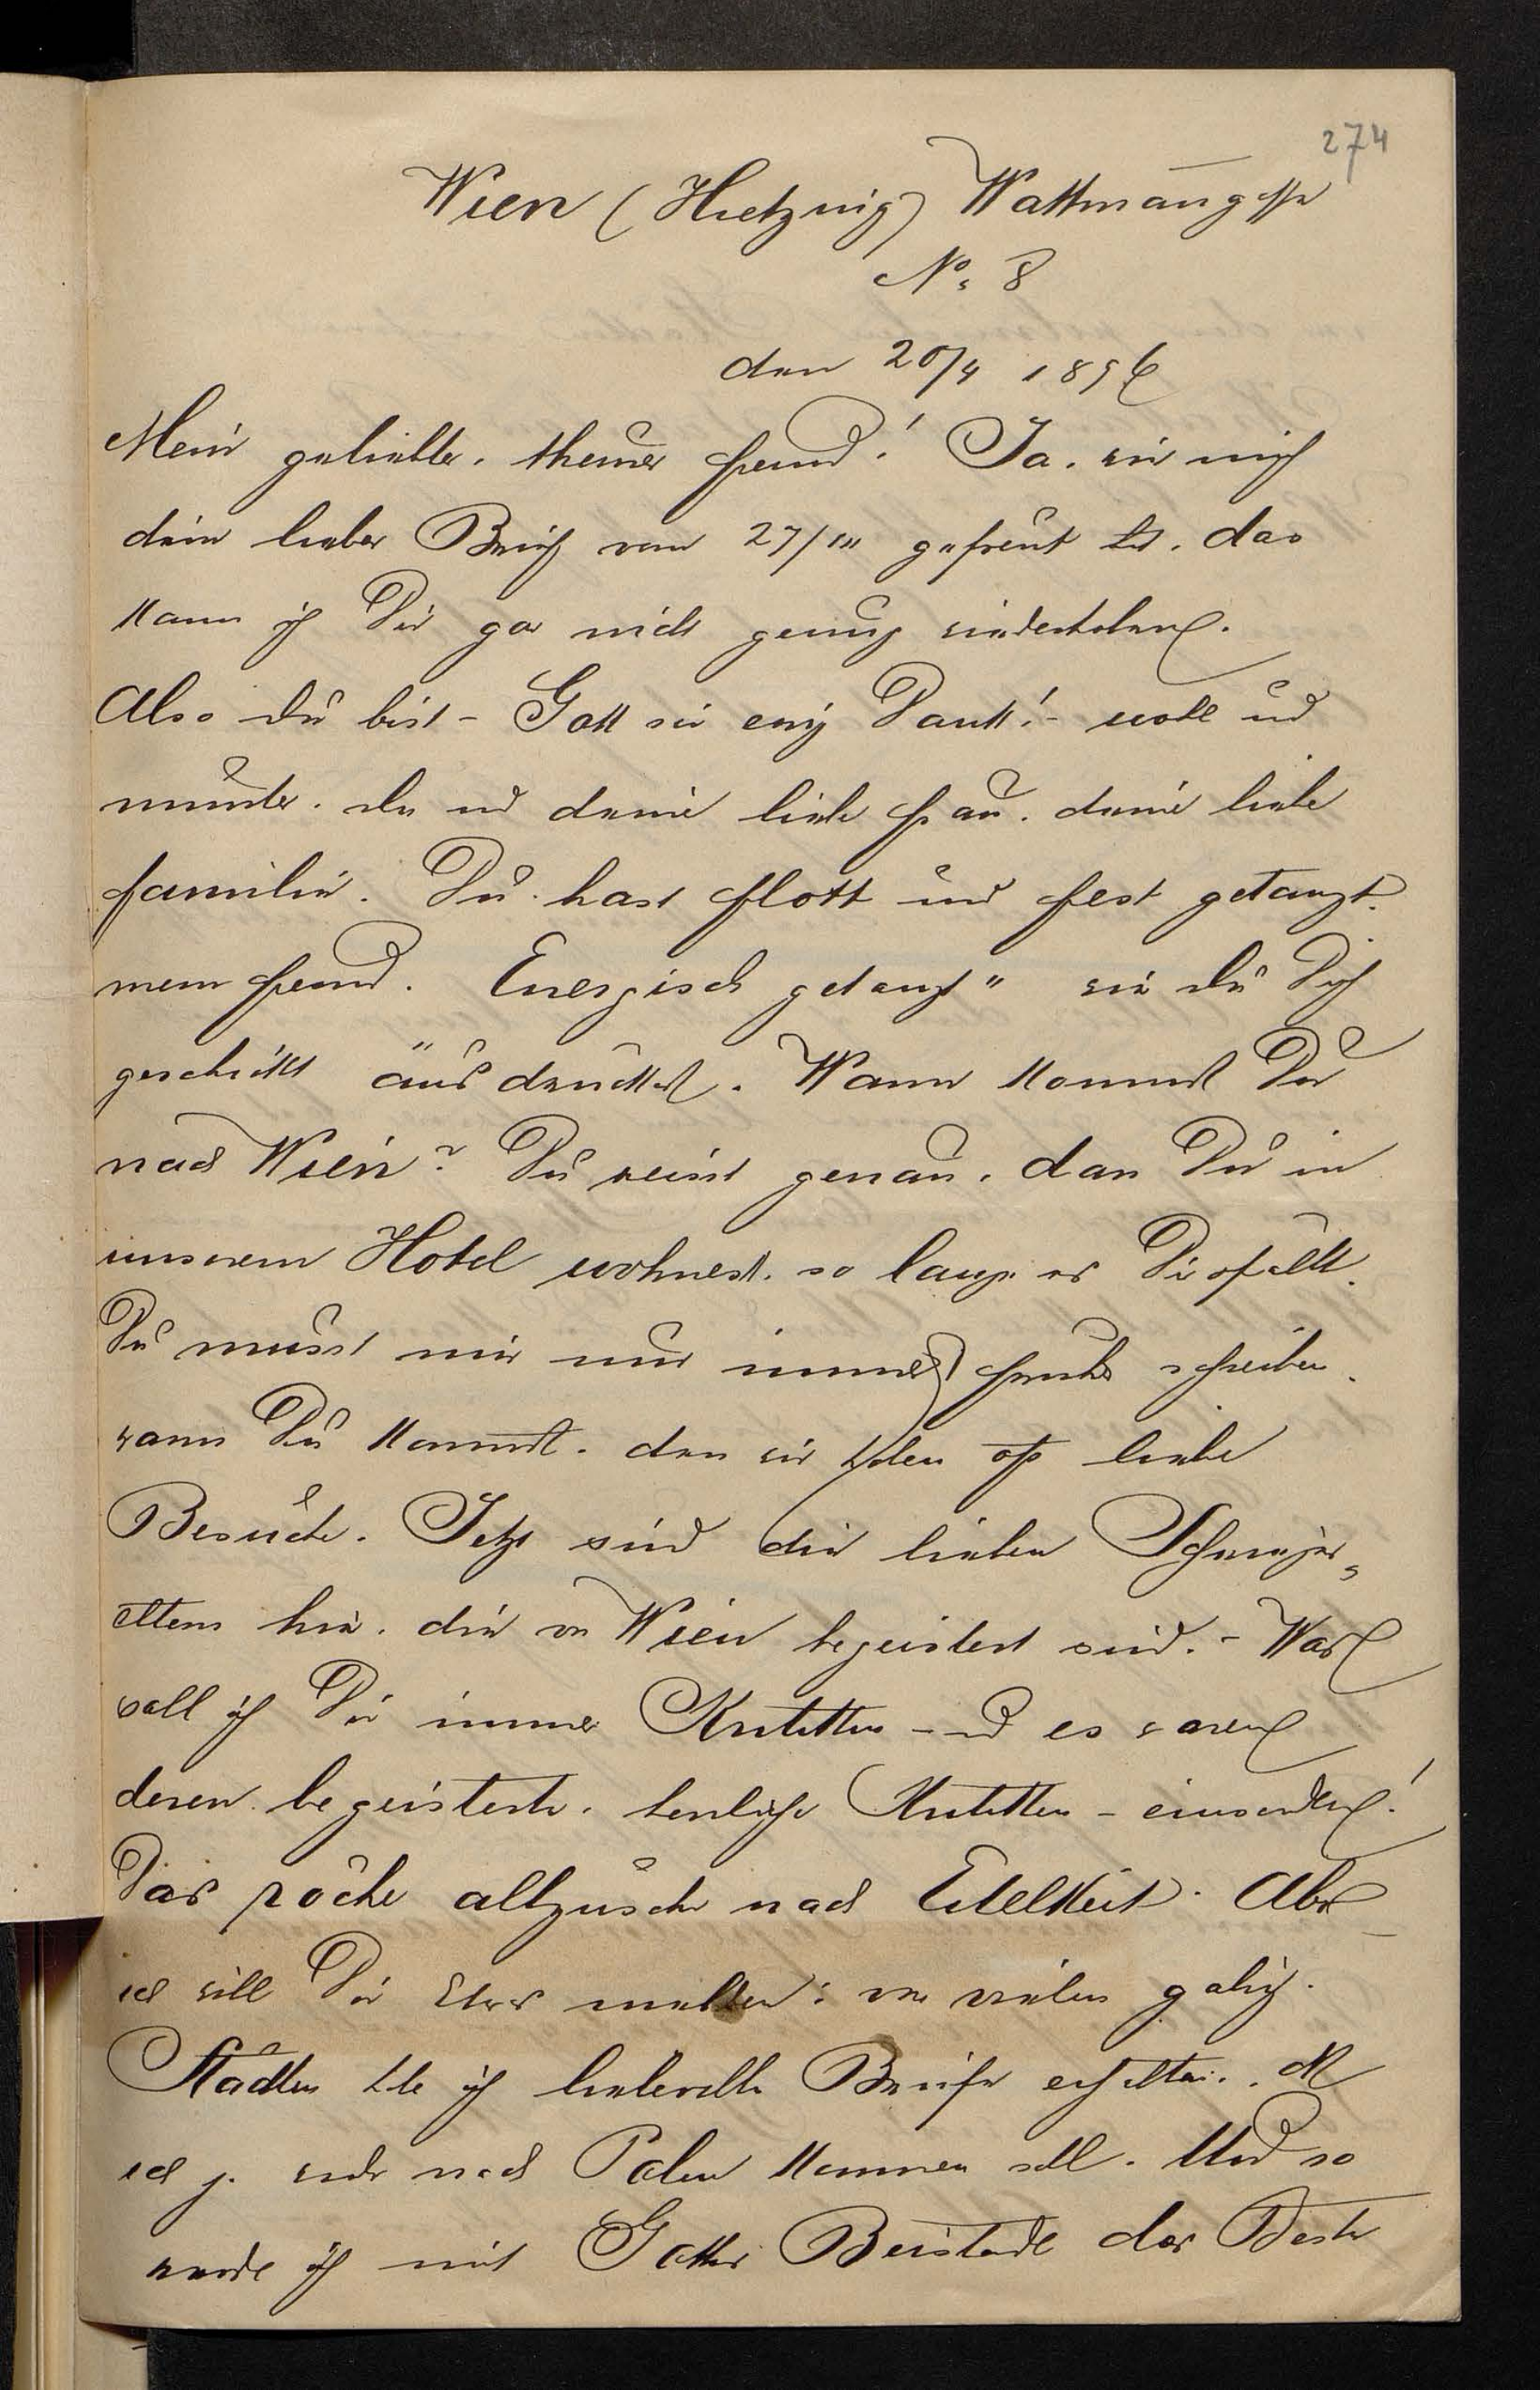 274
Wien (Hietzing) Wattmangasse
No. 8
den 20/4 1896
Mein geliebter, theurer Freund! Ja, wie mich
dein lieber Brief vom 27/III gefreut hat, das
kann ich Dir gar nicht genug wiederholen.
Also du bist – Gott sei ewig Dank! – wohl und
munter, du und deine liebe Frau, deine liebe
Familie. Du hast flott und fest getanzt,
mein Freund. Energisch getanzt" wie du Dich
geschickt ausdrückst. Wann kommst Du
nach Wien? Du weisst genau, dass Du in
unserem Hotel wohnest, so lange es Dir gefällt.
Du musst mir nur immer früher schreiben,
wann Du kommst, denn wir haben oft liebe
Besuche. Jetzt sind die lieben Schwieger„
eltern hier, die von Wien begeistert sind. – Was
soll ich Dir immer Kritiken – und es waren
deren begeisterte, herrliche Kritiken – einsenden!
Das röche allzusehr nach Eitelkeit. Aber
ich will Dir Etwas melden: von vielen galiz.
Städten habe ich liebevolle Briefe erhalten,
ich ja wieder nach Polen kommen soll. Und so
werde ich mit Gottes Beistande das Beste